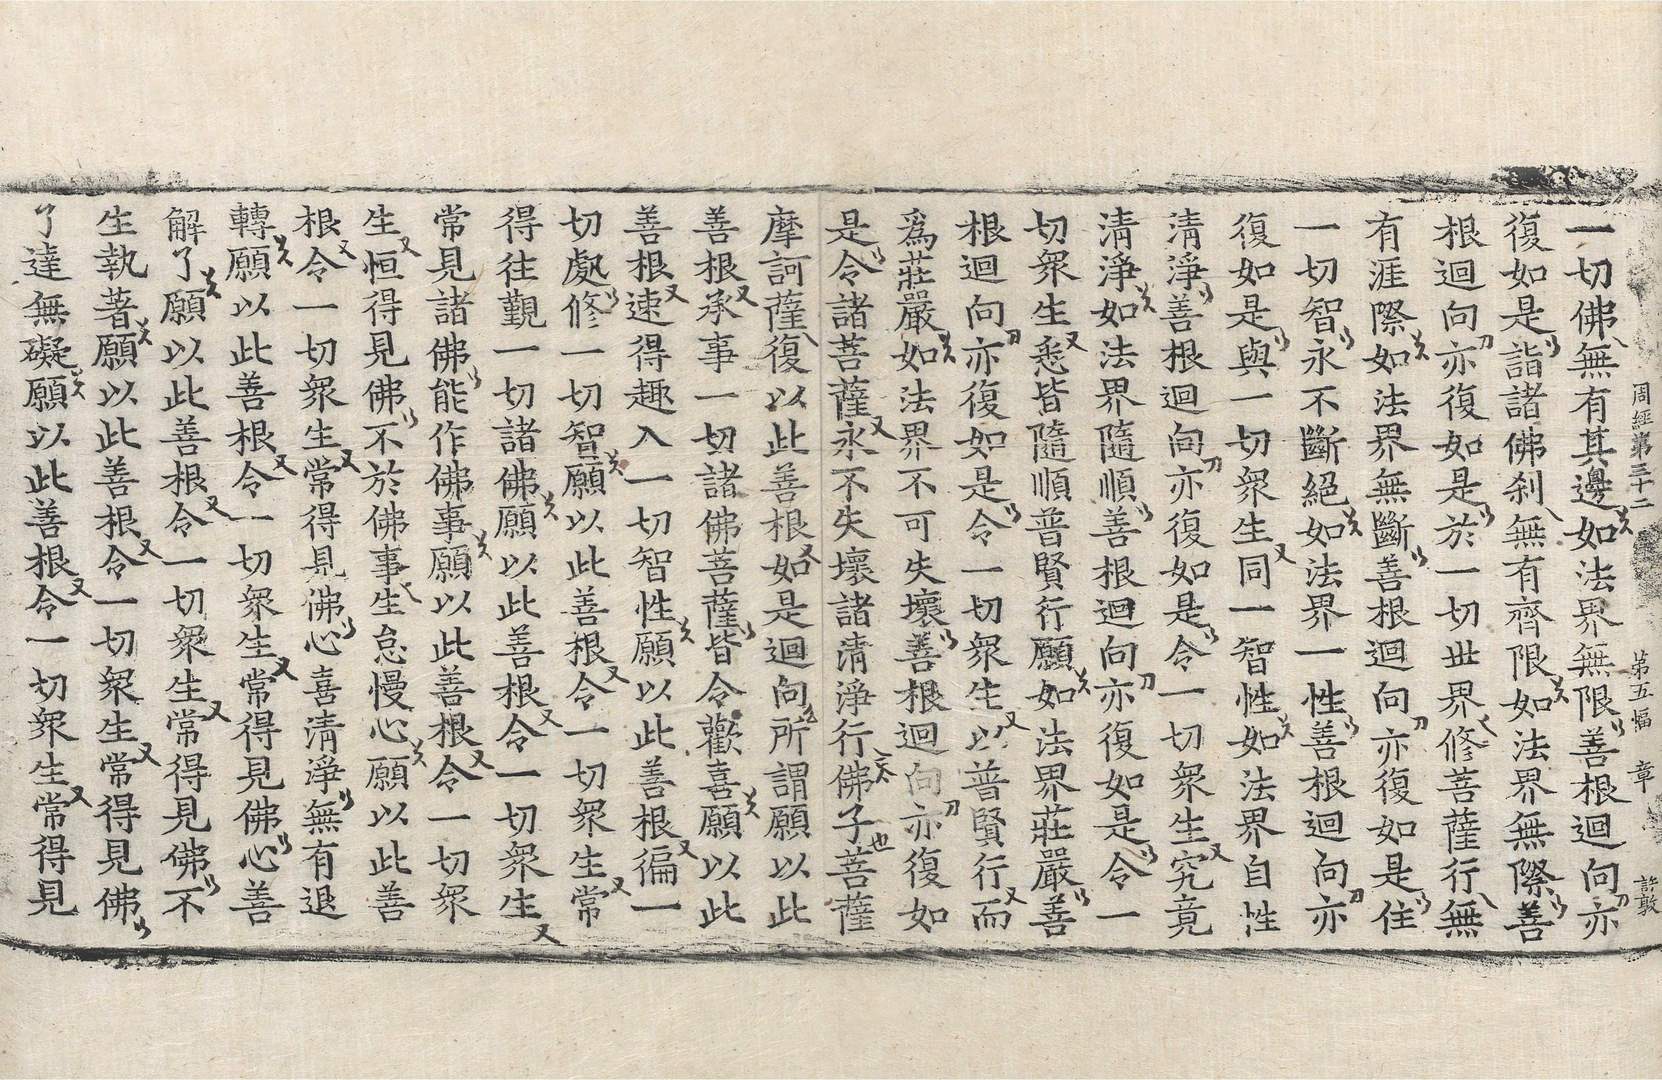 周經第三十二 第五幅 章 許敦
一切佛無有其邊如法界無限善根迴向亦
復如是詣諸佛刹無有齊限如法界無際善
根迴向亦復如是於一切世界修菩薩行無
有涯際如法界無斷善根迴向亦復如是住
一切智永不斷絕如法界一性善根迴向亦
復如是與一切衆生同一智性如法界自性
清淨善根迴向亦復如是令一切衆生究竟
清淨如法界隨順善根迴向亦復如是令一
切衆生悉皆隨順普賢行願如法界莊嚴善
根迴向亦復如是令一切衆生以普賢行而
爲莊嚴如法界不可失壞善根迴向亦復如
是令諸菩薩永不失壞諸清淨行佛子菩薩
摩訶薩復以此善根如是迴向所謂願以此
善根承事一切諸佛菩薩皆令歡喜願以此
善根速得趣入一切智性願以此善根徧一
切處修一切智願以此善根令一切衆生常
得往覲一切諸佛願以此善根令一切衆生
常見諸佛能作佛事願以此善根令一切衆
生恒得見佛不於佛事生怠慢心願以此善
根令一切衆生常得見佛心喜清淨無有退
轉願以此善根令一切衆生常得見佛心善
解了願以此善根令一切衆生常得見佛不
生執著願以此善根令一切衆生常得見佛
了達無礙願以此善根令一切衆生常得見